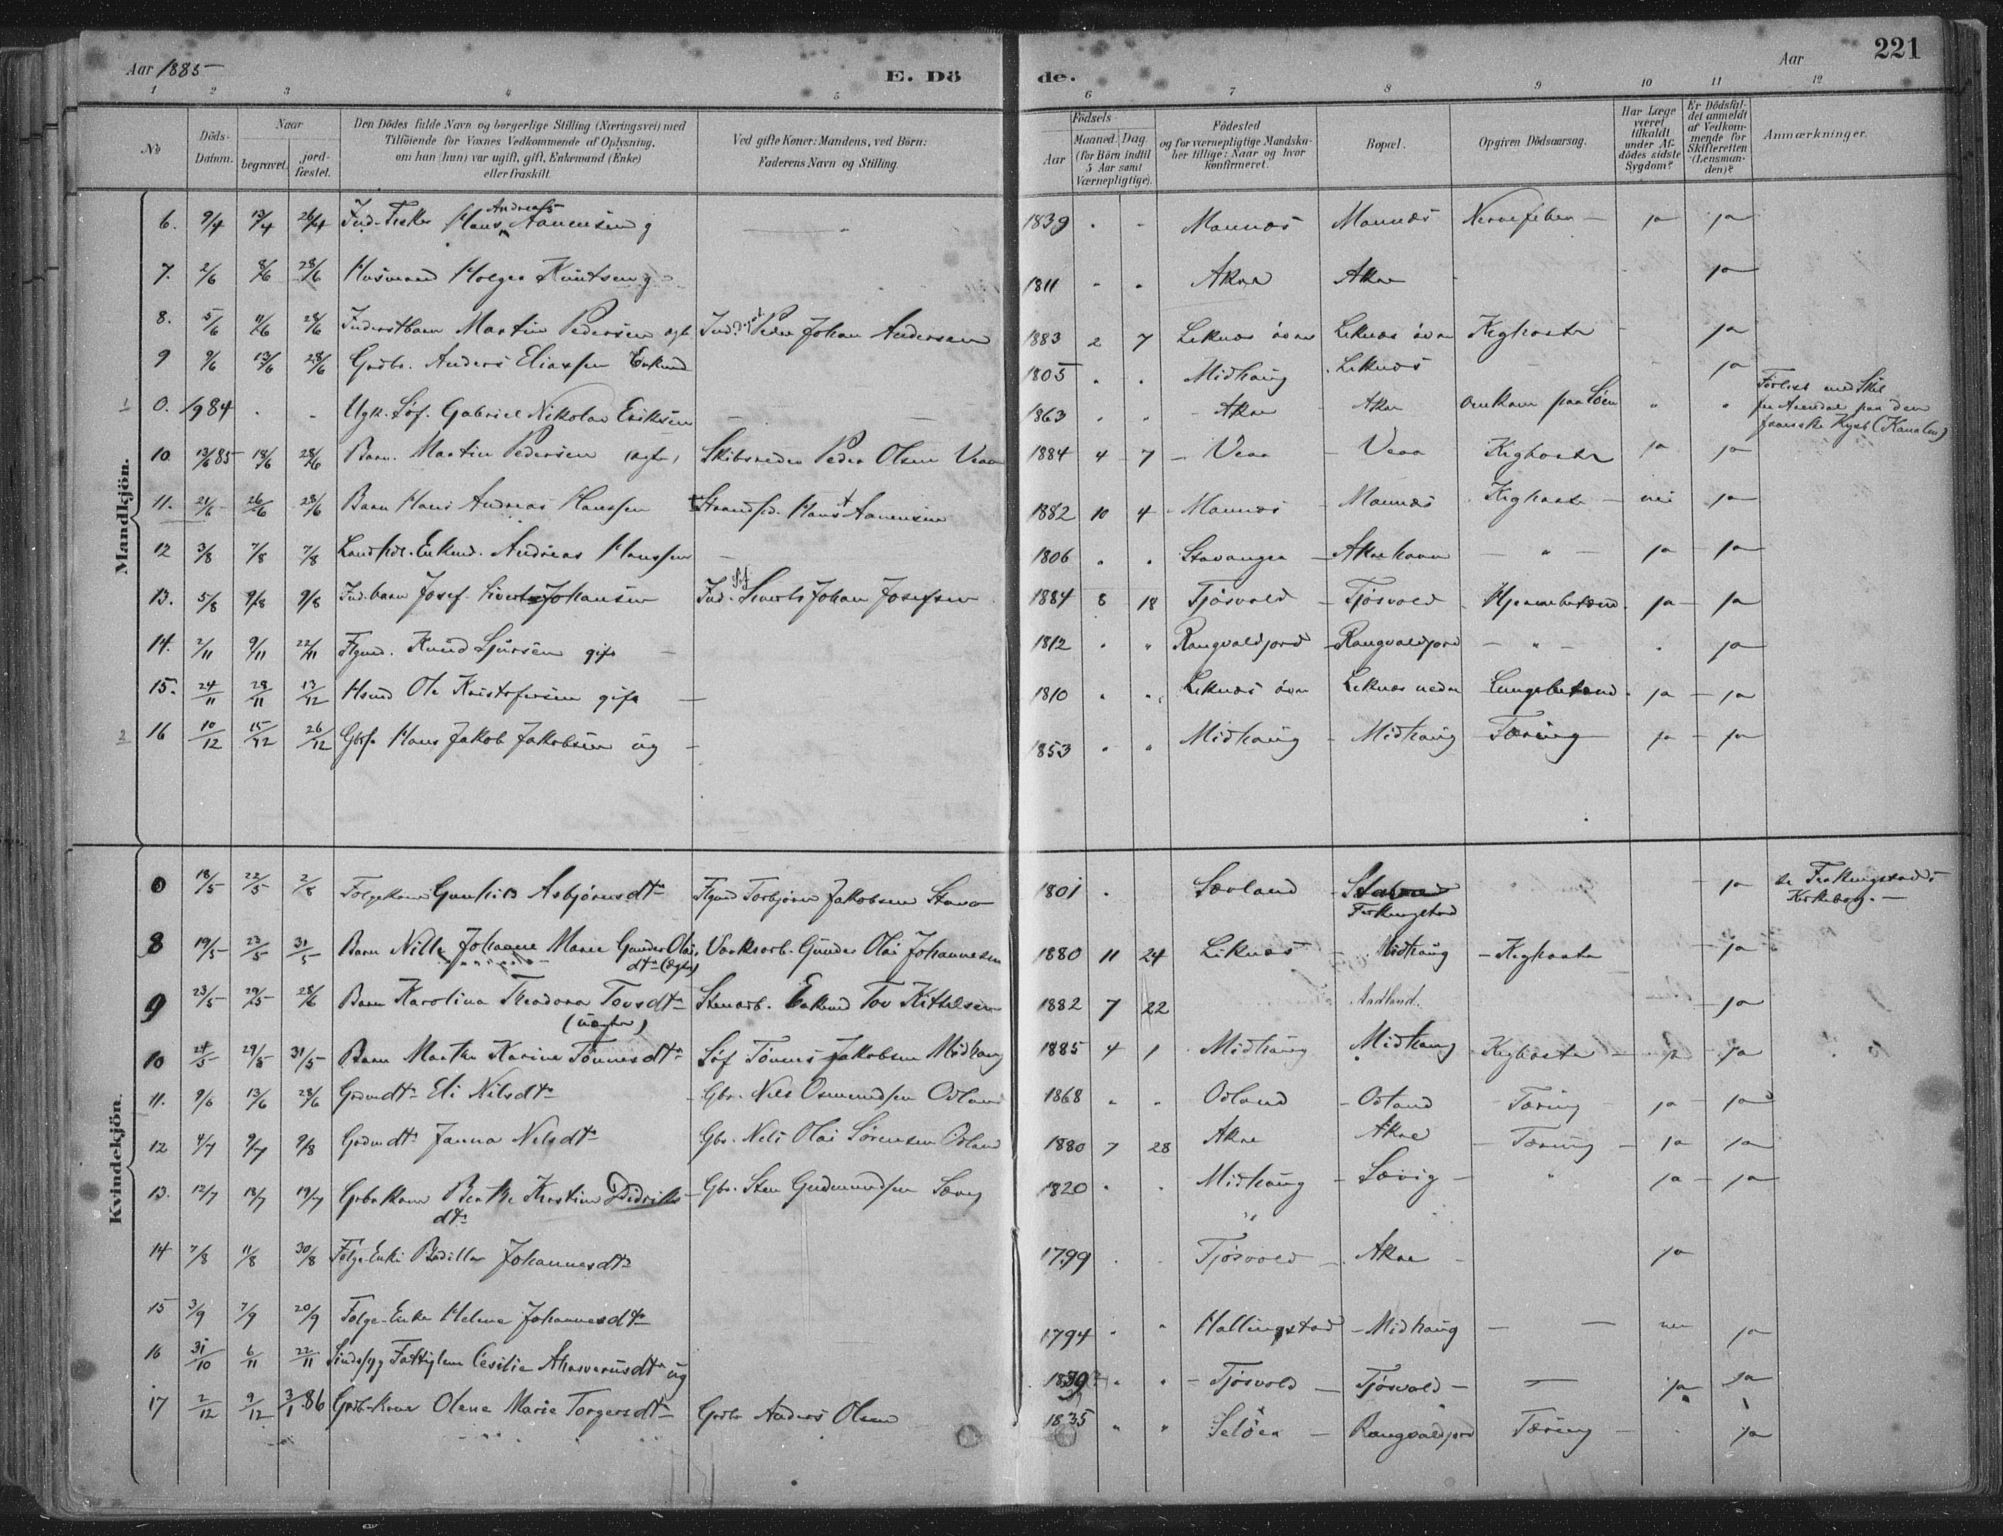 Aar 1885
E. Dö
de.
Aar
221
1 2 3 4 5 6 7 8 9 10 11 12
No
Döds-Datum.
Naar
begravet.
jord-fæstet.
Den Dödes fulde Navn og borgerlige Stilling (Næringsvei) med
Tilföiende for Voxnes Vedkommende af Oplysning,
om han (hun) var ugift, gift, Enkemand (Enke)
eller fraskilt.
Ved gifte Koner: Mandens, ved Börn:
Faderens Navn og Stilling.
Födsels
Aar
Maaned. Dag
(for Börn indtil
5 Aar samt
Værnepligtige).
Födested
og for værnepligtige Mandska-
ber tillige: Naar og hvor
konfirmeret.
Bopæl.
Opgiven Dödsaarsag.
Har Læge
været
tilkaldt
under Af-
dödes sidste
Sygdom?
Er Dödsfal-
det anmeldt
af Vedkom-
mende for
Skifteretten
(Lensman-
den)?
Anmærkninger.
Mandkjön.
6. 9/4 13/4 26/4 Ind. Fisker Hans Andreas Aanensen g 1839 Mannæs Mannæs Nervefeber ja ja
7. 2/6 8/6 28/6 Husmand Holger Knutsen g 1811 Akre Akre ja
8. 5/6 11/6 28/6 Inderstbarn Martin Pedersen ægte Ind. Peder Johan Andersen 1883 2 7 Leknæs övre Leknæs övre Kighoste ja
9 9/6 13/6 28/6 Grdbr. Anders Eliassen Enkmd 1805 Midhaug Leknæs ja
0. 1984 Ugk. Söf. Gabriel Nikolai Eriksen 1863 Akre Akre Omkom paa Söen Forlist med Skib
fra Arendal paa den
franske Kyst (Kanalen)
10 13/6 85 18/6 28/6 Barn. Martin Pedersen (ægte) Skibsreder Peder Olsen Veaa 1884 4 7 Veaa Veaa Kighoste ja ja
11. 21/6 26/6 28/6 Barn Hans Andreas Hanssen Strandsid. Hans A Aanensen 1882 10 4 Mannæs Mannæs Kighoste nei ja
12 3/8 7/8 7/8 Landhdl. Enkmd. Andreas Hanssen 1806 Stavanger Akrehavn ja ja
13. 5/8 9/8 9/8 Ind. barn Josef Sivert Johansen Ind. Söf Sivert Johan Josefsen 1884 8 18 Tjösvold Tjösvold Hjernebetænd. ja ja
14. 2/11 9/11 22/11 Flgmd. Knud Sjursen gift 1812 Rangvaldjord Rangvaldjord ja
15. 24/11 29/11 13/12 Hsmd Ole Kristofersen gift 1810 Leknæs övre Leknæs nedre Lungebetænd. ja ja
16 10/12 15/12 26/12 Gbrs. Hans Jakob Jakobsen ug 1853 Midhaug Midhaug Tæring ja ja
Kvindekjön.
0 18/5 22/5 2/8 Folgekone Gunhild Asbjörnsdtr Flgmd Torbjörn Jakobsen Stava 1801 Sævland Ferkingstad ja
8 19/5 23/5 31/5 Barn Nille Johanne Marie Gunder Olais dtr (ægte) Værksarb. Gunder Olai Johannesen 1880 11 24 Leknæs Midhaug Kighoste ja
9 23/5 29/5 28/6 Barn Karolina Theodora Tovsdtr (uægte) Stenarb. Enkmd Tov Kittelsen 1882 7 22 Aadland. ja
10 24/5 29/5 31/5 Barn Marthe Karine Tönnesdtr Söf Tönnes Jakobsen Midhaug 1885 4 1 Midhaug Midhaug Kighoste ja ja
11. 9/6 13/6 28/6 Grdmdtr Eli Nilsdtr Gbr. Nils Osmundsen Odland 1868 Odland Odland Tæring ja ja
12 4/7 9/7 9/8 Grdmdtr Janna Nilsdtr Gbr. Nils Olai Sörensen Odland 1880 7 28 Akre Akre Tæring ja ja
13. 12/7 18/7 19/7 Grbr.kone Berthe Kirstine Didriks dtr Gbr. Sten Gudmundsen Sævig 1820 Midhaug Sævig ja ja
14 7/8 11/8 30/8 Folge Enke Bodilla Johannesdtr 1799 Tjösvold Akre ja
15 3/9 7/9 20/9 Folge-Enke Helene Johannesdtr 1794 Hallingstad Midhaug nei ja
16 31/10 6/11 22/11 Sindssyg Fattiglem Cesilie Ahasverusdtr ug Tjösvold Tjösvold ja ja
17 2/12 9/12 3/1.86 Grdbr.kone Olene Marie Torgersdtr Grdbr Anders Olsen 1835 Selöen Rangvaldjord Tæring ja